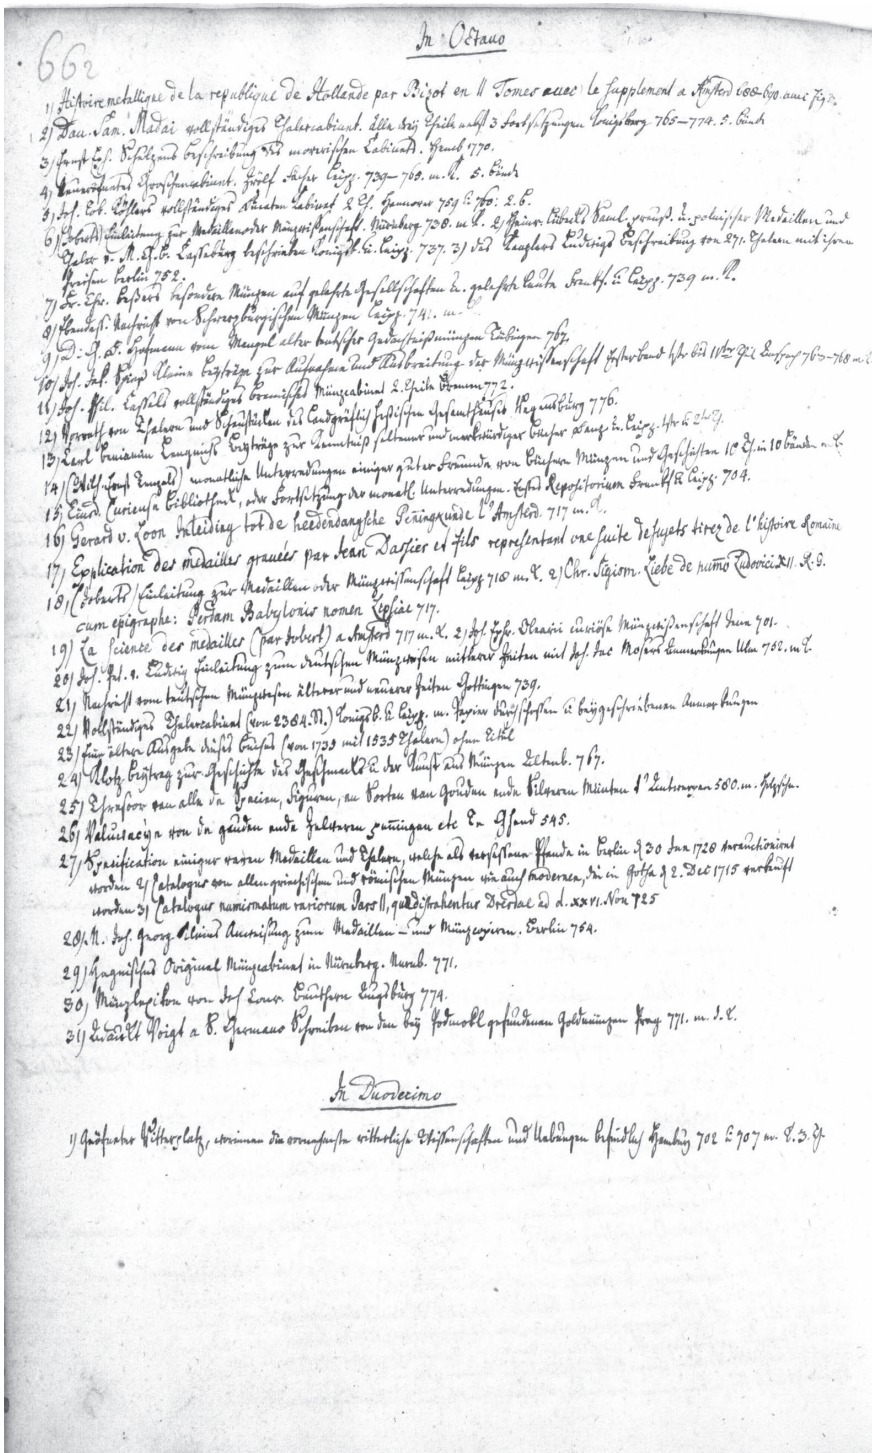 662
In Octavo
1) Histoire metallique de la republique de Hollande par Bizot en II Tomes avec le supplement a Amsterd 688-690. avec Fig.
2) Dav. Sam. Madai vollständiges Thalercabinet. Alle drey Theile nebst 3 Fortsetzungen Königsberg 765–774. 5. bände
3) Ernst Beschreibung des Cabinets. 1770.
4) Neueröfnetes Groschencabinet. Zwölf Fächer Leipz. 739–765. m. K. 5. bände
5) Joh. Tob. Köhlers vollständiges Ducaten Cabinet 2 Th. Hannover 759 u 760. 2. b.
6) (Joberts) Einleitung zur Medaillen oder Münzwissenschaft. Nürnberg 738. m. K. 2) Heinr. Lübecks Saml. preuß. u. polnischer Medaillen und
Thaler v. M. beschrieben Königsb. u. Leipz. 737. 3) des Kanzlers Ludwigs Beschreibung von 271. Thalern mit ihren
Preisen berlin 752.
7) besondere Münzen auf gelehrte Gesellschaften u. gelehrte Leute Frankf. u Leipz. 739 m. K.
8) Ebendess. Nachricht von Schwarzburgischen Münzen Leipz. 74 m.
9) D. Hofmann vom Mangel alter teutscher Gedächtnißmünzen Tübingen 767.
10) Joh. Jak. Spies Kleine Beyträge zur Aufnahme und Ausbreitung der Münzwissenschaft Erster band 1ster bis Anspach 763–768 m. K
11) Joh. Phil. Cassels vollständiges bremisches Münzcabinet 2. Theile Bremen 772.
12) Vorrath von Thalern und Schaustücken des Landgräflich heßischen Gesamthauses Regensburg 776.
13) Carl Benjamin Lengnichs Beyträge zur Kenntniß seltener und merkwürdiger Bücher Danz. u. Leipz. 1ster u 2ter Th.
14) (Wilh. Ernst Tenzels) monatliche Unterredungen einiger guter Freunde von Büchern Münzen und Geschichten 10 Th. in 10 bänden m. K.
15) Eiusd. Curieuse Bibliothek, oder Fortsetzung der monatl. Unterredungen. Erstes Repositorium Frankf. u Leipz. 704.
16) Gerard v. Loon Inleiding tot de heedendaagsche Penningkunde t'Amsterd. 717 m. K.
17) Explication des medailles gravées par Jean Dassier et fils representant une suite de sujets tirez de l'histoire Romaine
18) (Joberts) Einleitung zur Medaillen oder Münzwissenschaft Leipz 718 m. K. 2) Chr. Sigism. Liebe de numo Ludovici XII. R. G.
cum epigraphe: Perdam Babylonis nomen Lipsiae 717.
19) La science des medailles (par Jobert) a Amsterd 717 m. K. 2) Joh. Olearii curiöse Münzwißenschaft Jena 701.
20) Joh. Pet. v. Ludwig Einleitung zum deutschen Münzwesen mittlerer Zeiten mit Joh. Jac Mosers Anmerkungen Ulm 752. m. K.
21) Nachricht vom teutschen Münzwesen älterer und neuerer Zeiten Göttingen 739.
22) Vollständiges Thalercabinet (von 2384. St.) Königsb. u Leipz. m. Papier durchschossen u beygeschriebenen Anmerkungen
23) Eine ältere Ausgabe dieses Buches (von 1735 mit 1535 Thalern) ohne Titul
24) Klotz Beytrag zur Geschichte des Geschmacks u der Kunst aus Münzen Altenb. 767.
25) Thresoor van alle de Specien, Figuren, en Sorten van Gouden ende Silveren Munten t'Antwerpen 580. m. Holzschn.
26) Valuwacye von de gouden ende zelveren penningen etc Te Ghend 545.
27) Specification einiger raren Medaillen und Thalern, welche als versessene Pfande in Berlin d 30 Jun 1728 verauctioniret
worden 2) Catalogus von allen griechischen und römischen Münzen wie auch moderne, die in Gotha d 2. Dec 1715 verkauft
worden 3) Catalogus numismatum rariorum Pars II, quae distrahentur Dresdae ad d. XXVI. Nov 725
28) M. Joh. Georg Anweisung zum Medaillen- und Münzcopiren. Berlin 754.
29) Original Münzcabinet in Nürnberg. Nurnb. 771.
30) Münzlexikon von Joh Conr. Augsburg 774.
31) Adauckt Voigt a S. Germano Schreiben von den bey Podmokl gefundenen Goldmünzen Prag 771. m. 1. K.
In Duodecimo
1) Geöfneter Ritterplatz, worinnen die vornehmste ritterliche Wissenschaften und Uebungen befindlich Hamburg 702 u 707 m. K. 3. Th.